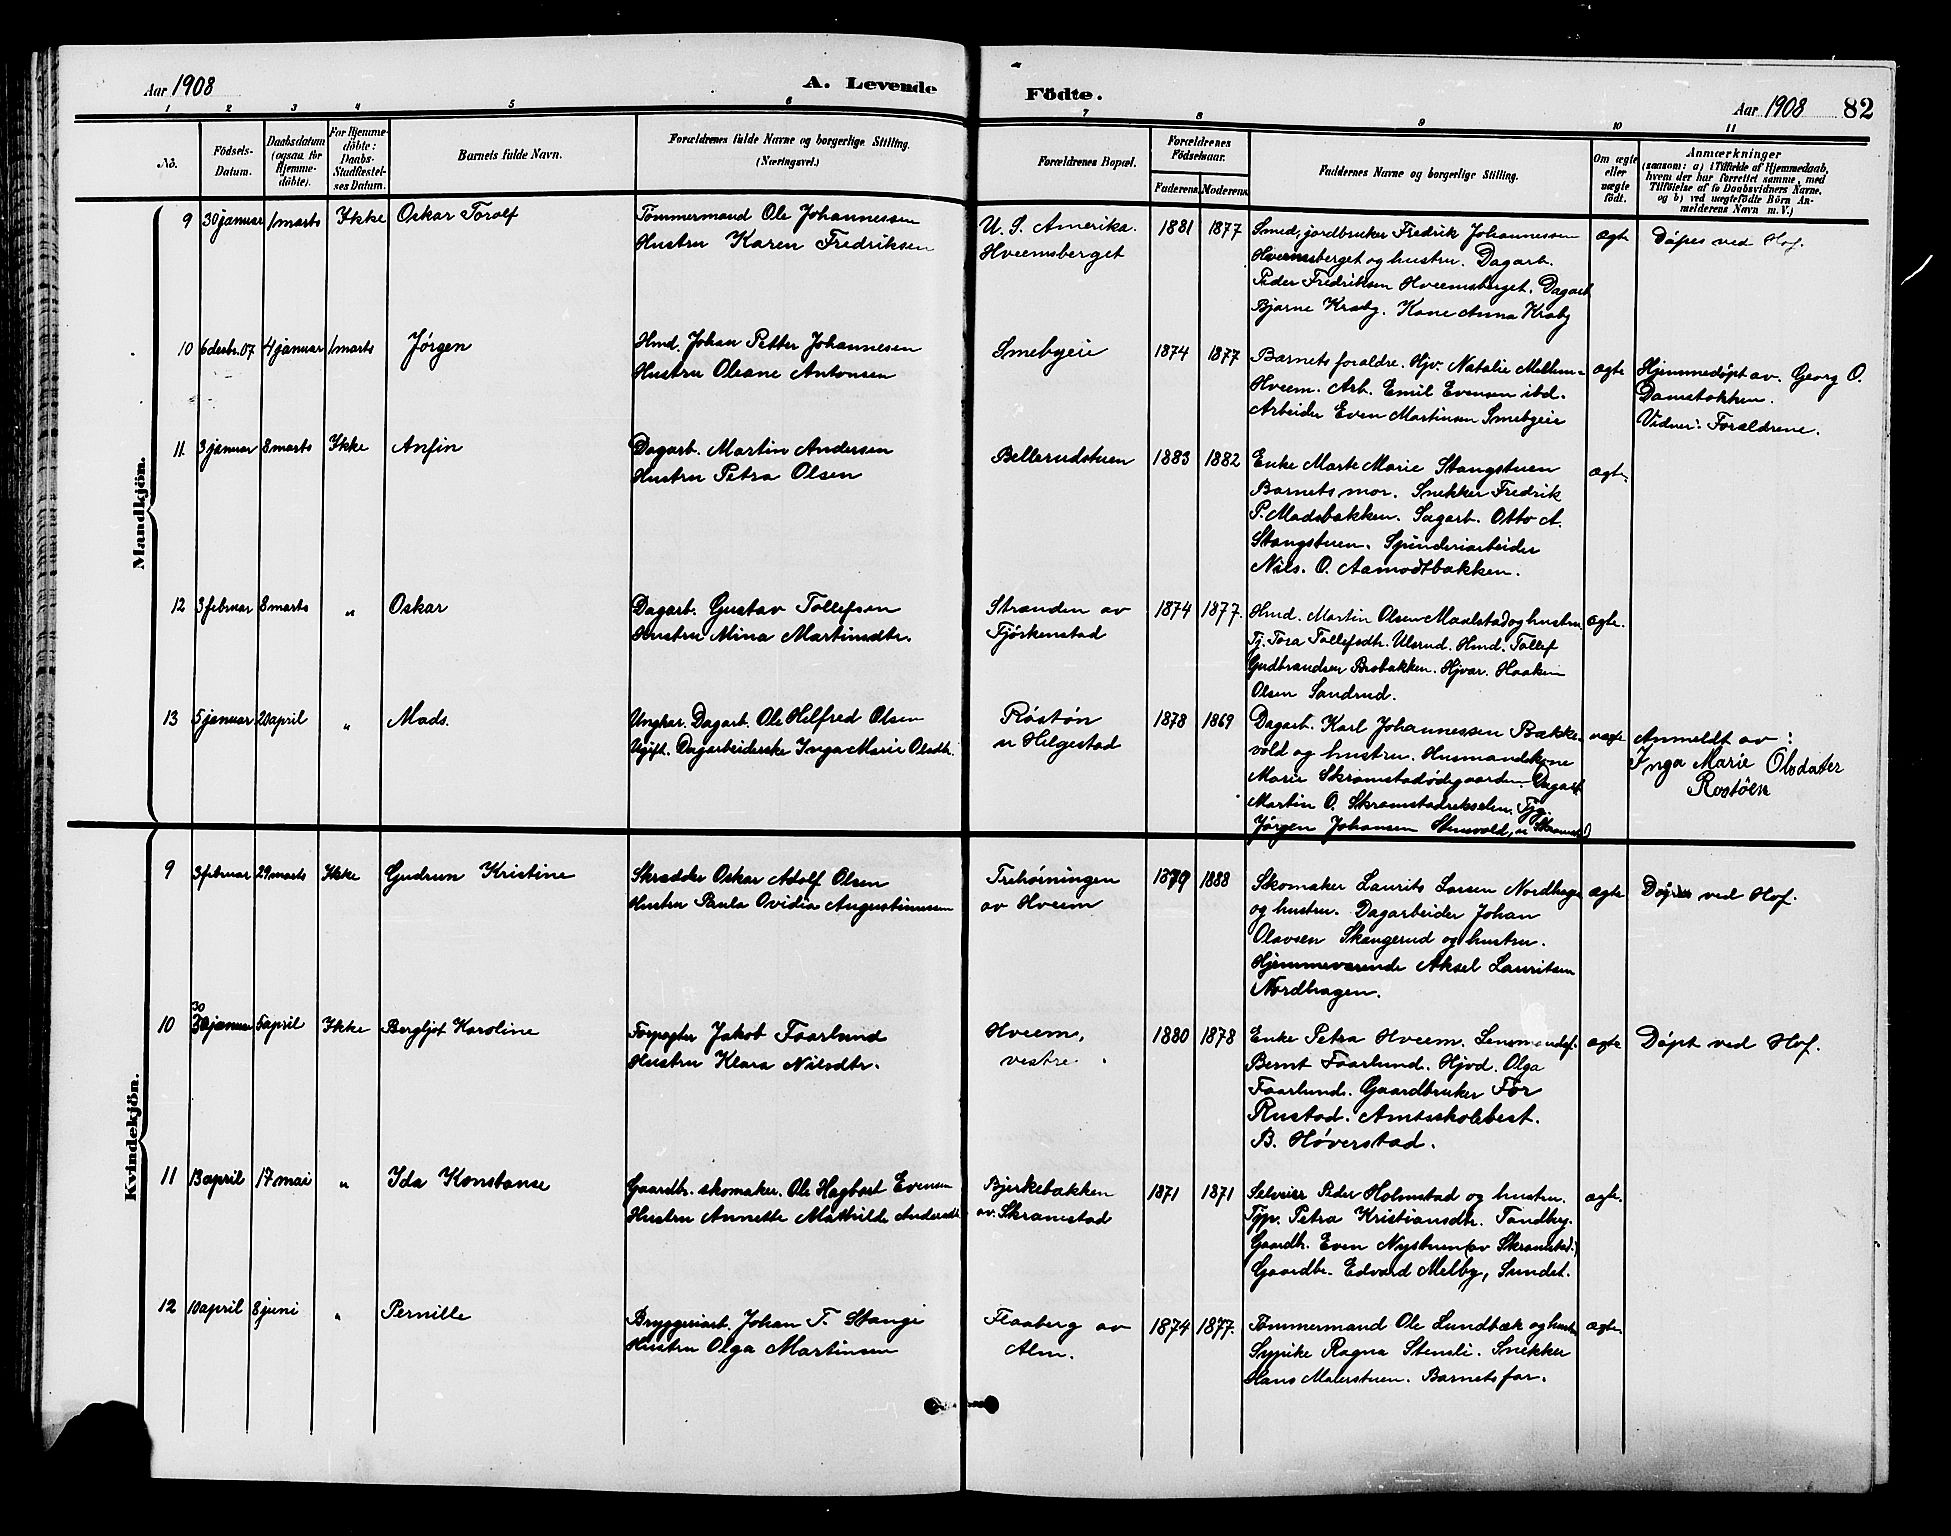 Aar 1908
A. Levende Födte.
Aar 1908 82
1 2 3 4 5 6 7 8 9 10 11
No.
Födsels-Datum.
Daabsdatum (ogsaa for Hjemme-döbte).
For Hjemme-döbte: Daabs-Stadfæstel-ses Datum.
Barnets fulde Navn.
Forældrenes fulde Navne og borgerlige Stilling. (Næringsvei.)
Forældrenes Bopæl.
Forældrenes Födselsaar.
Faderens. Moderens.
Faddernes Navne og borgerlige Stilling.
Om ægte eller uægte födt.
Anmærkninger
(saasom: a) i Tilfælde af Hjemmedaab,
hvem der har forrettet samme, med
Tilföielse af to Daabsvidners Navne,
og b) ved uægtefödte Börn An-
melderens Navn m. V.)
Mandkjön.
9 30 januar 1 marts Ikke Oskar Torolf
Tömmermand Ole Johannessen
Hustru Karen Fredriksen
U. S. Amerika.
Hveemsberget
1881 1877
Smed, jordbruker Fredrik Johannessen
Hveemsberget og hustru. Dagarb.
Peder Fredriksen Hveemsberget. Dagarb
Bjarne Kraby. Kone Anna Kraby
ægte
Døpes ved Hof.
10 6 decbr. 07 4 januar 1 marts Jörgen
Hmd. Johan Petter Johannesen
Hustru Oleane Antonsen
Smebyeie
1874 1877
Barnets foraldre. Hjv. Natalie Mellem-
Hveem. Arb. Emil Evensen ibd.
Arbeider Even Martinsen Smebyeie
ægte
Hjemmedøpt av. Georg O.
Damstokken.
Vidner: Forældrene.
11. 3 januar 8 marts Ikke Anfin
Dagarb. Martin Andersen
Hustru Petra Olsen
Bellerudstuen
1883 1882
Enke Marte Marie Stangstuen
Barnets mor. Snekker Fredrik
P. Madsbakken. Sagarb. Otto A.
Stangstuen. Spinderiarbeider
Nils. O. Aamodtbakken.
ægte.
12 3 februar 8 marts " Oskar
Dagarb. Gustav Tollefsen
Hustru Mina Martinsdtr.
Stranden av
Fjørkenstad
1874 1877.
Hmd. Martin Olsen Maalstad og hustru
Tj. Tora Tollefsdtr. Ulsrud. Hmd. Tollef
Gudbrandsen Brobakken. Hjvar. Haakon
Olsen Sandrud.
ægte.
13 5 januar 20 april " Mads.
Ungkar. Dagarb. Ole Helfred Olsen
Ugift. Dagarbeiderske Inga Marie Olsdtr.
Røstøn
u Hilgestad
1878 1869
Dagarb. Karl Johannessen Bække-
vold og hustru. Husmandskone
Marie Skramstadødegaarden. Dagarb
Martin O. Skramstadekselen. Tjg.
Jörgen Johansen Stensvold, u Skramst.)
uægte
Anmeldt av:
Inga Marie Olsdater
Rostöen
Kvindekjön.
9 3 februar 29 marts Ikke Gudrun Kristine
Skrædder Oskar Adolf Olsen
Hustru Paula Ovidia Augustinussen
Trehörningen
av Hveem
1879 1888
Skomaker Laurits Larsen Nordhagen
og hustru. Dagarbeider Johan
Olavsen Skangerud og hustru.
Hjemmeværende Aksel Lauritsen
Nordhagen.
ægte
ved Hof.
10 30 januar 5 april Ikke Bergljot Karoline
Forpagter Jakob Faarlund
Hustru Klara Nilsdtr.
Hveem,
vestre.
1880 1878
Enke Petra Hveem. Lensmandsf.
Bernt Faarlund. Hjvd. Olga
Faarlund. Gaardbruker For
Rustad. Amtsskolebest.
B. Høverstad.
ægte
Døpt ved Hof.
11 13 april 17 mai " Ida Konstanse
Gaardbr. skomaker. Ole Hagbart Evensen
Hustru Annette Mathilde Andersdtr
Bjerkebakken
av. Skramstad
1871 1871
Selveier Peder Holmstad og hustru.
Tjp. Petra Kristiansdtr. Tandberg.
Gaardbr. Even Nystuen (av Skramstad.)
Gaardbr. Edvard Melby, Sundet.
ægte.
12 10 april 8 juni " Pernille
Bryggeriarb. Johan T. Stange
Hustru Olga Martinsen
Flaaberg av
Alm.
1874 1877.
Tömmermand Ole Lundbæk og hustru
Sypike Ragna Stensli. Snekker
Hans Malerstuen. Barnets far.
ægte